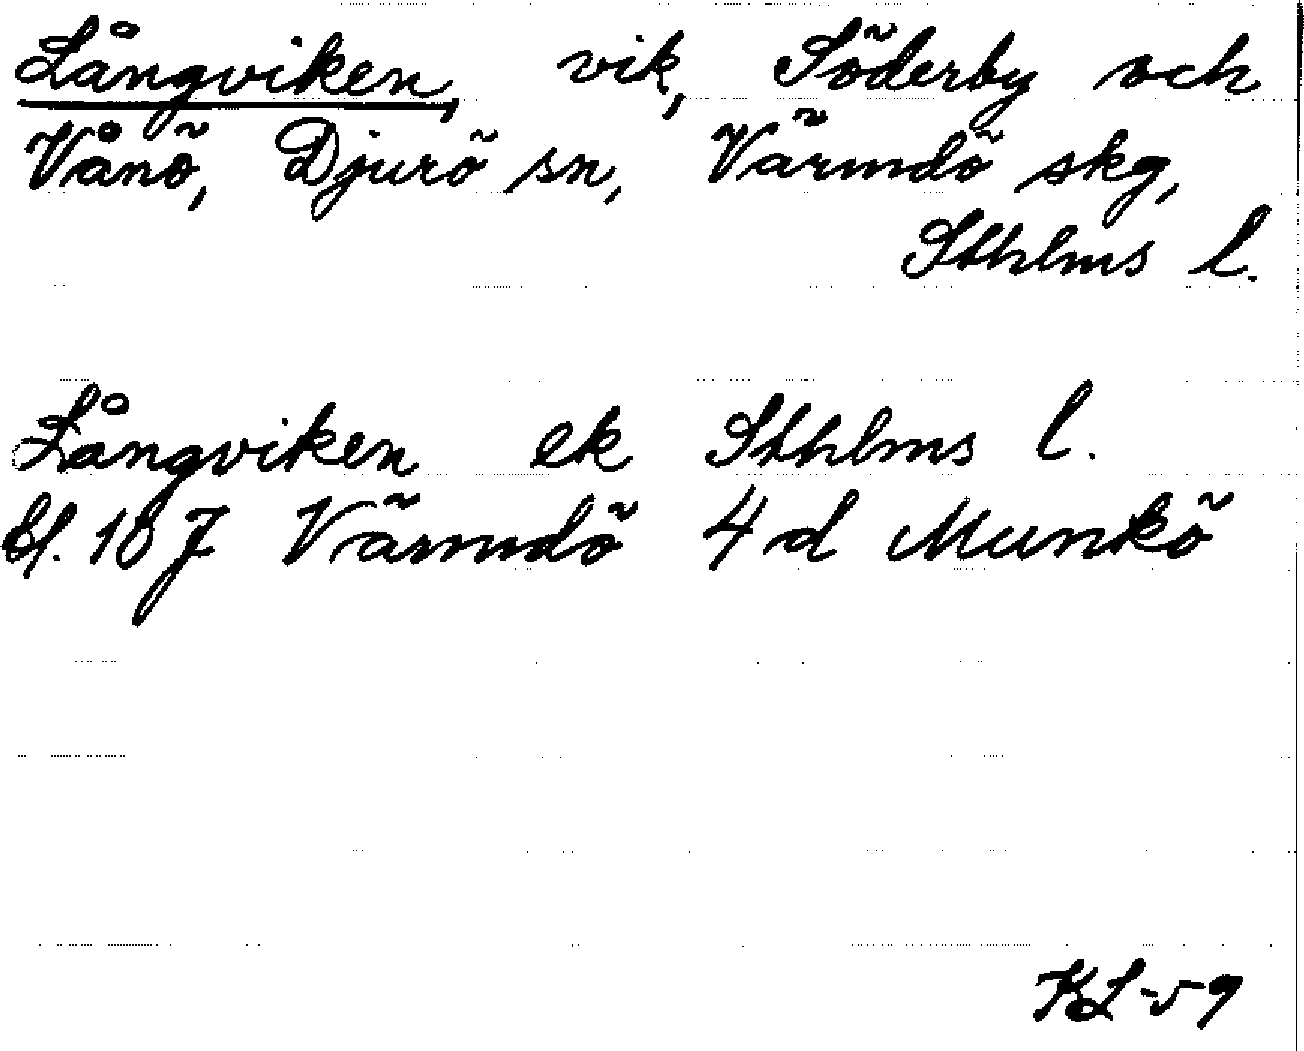 Långviken, vik, Söderby och
Vånö, Djurö sn, Värmdö skg,
Sthlms l.
Långviken ek Sthlms l.
bl. 107 Värmdö 4 d Munkö
KL-59